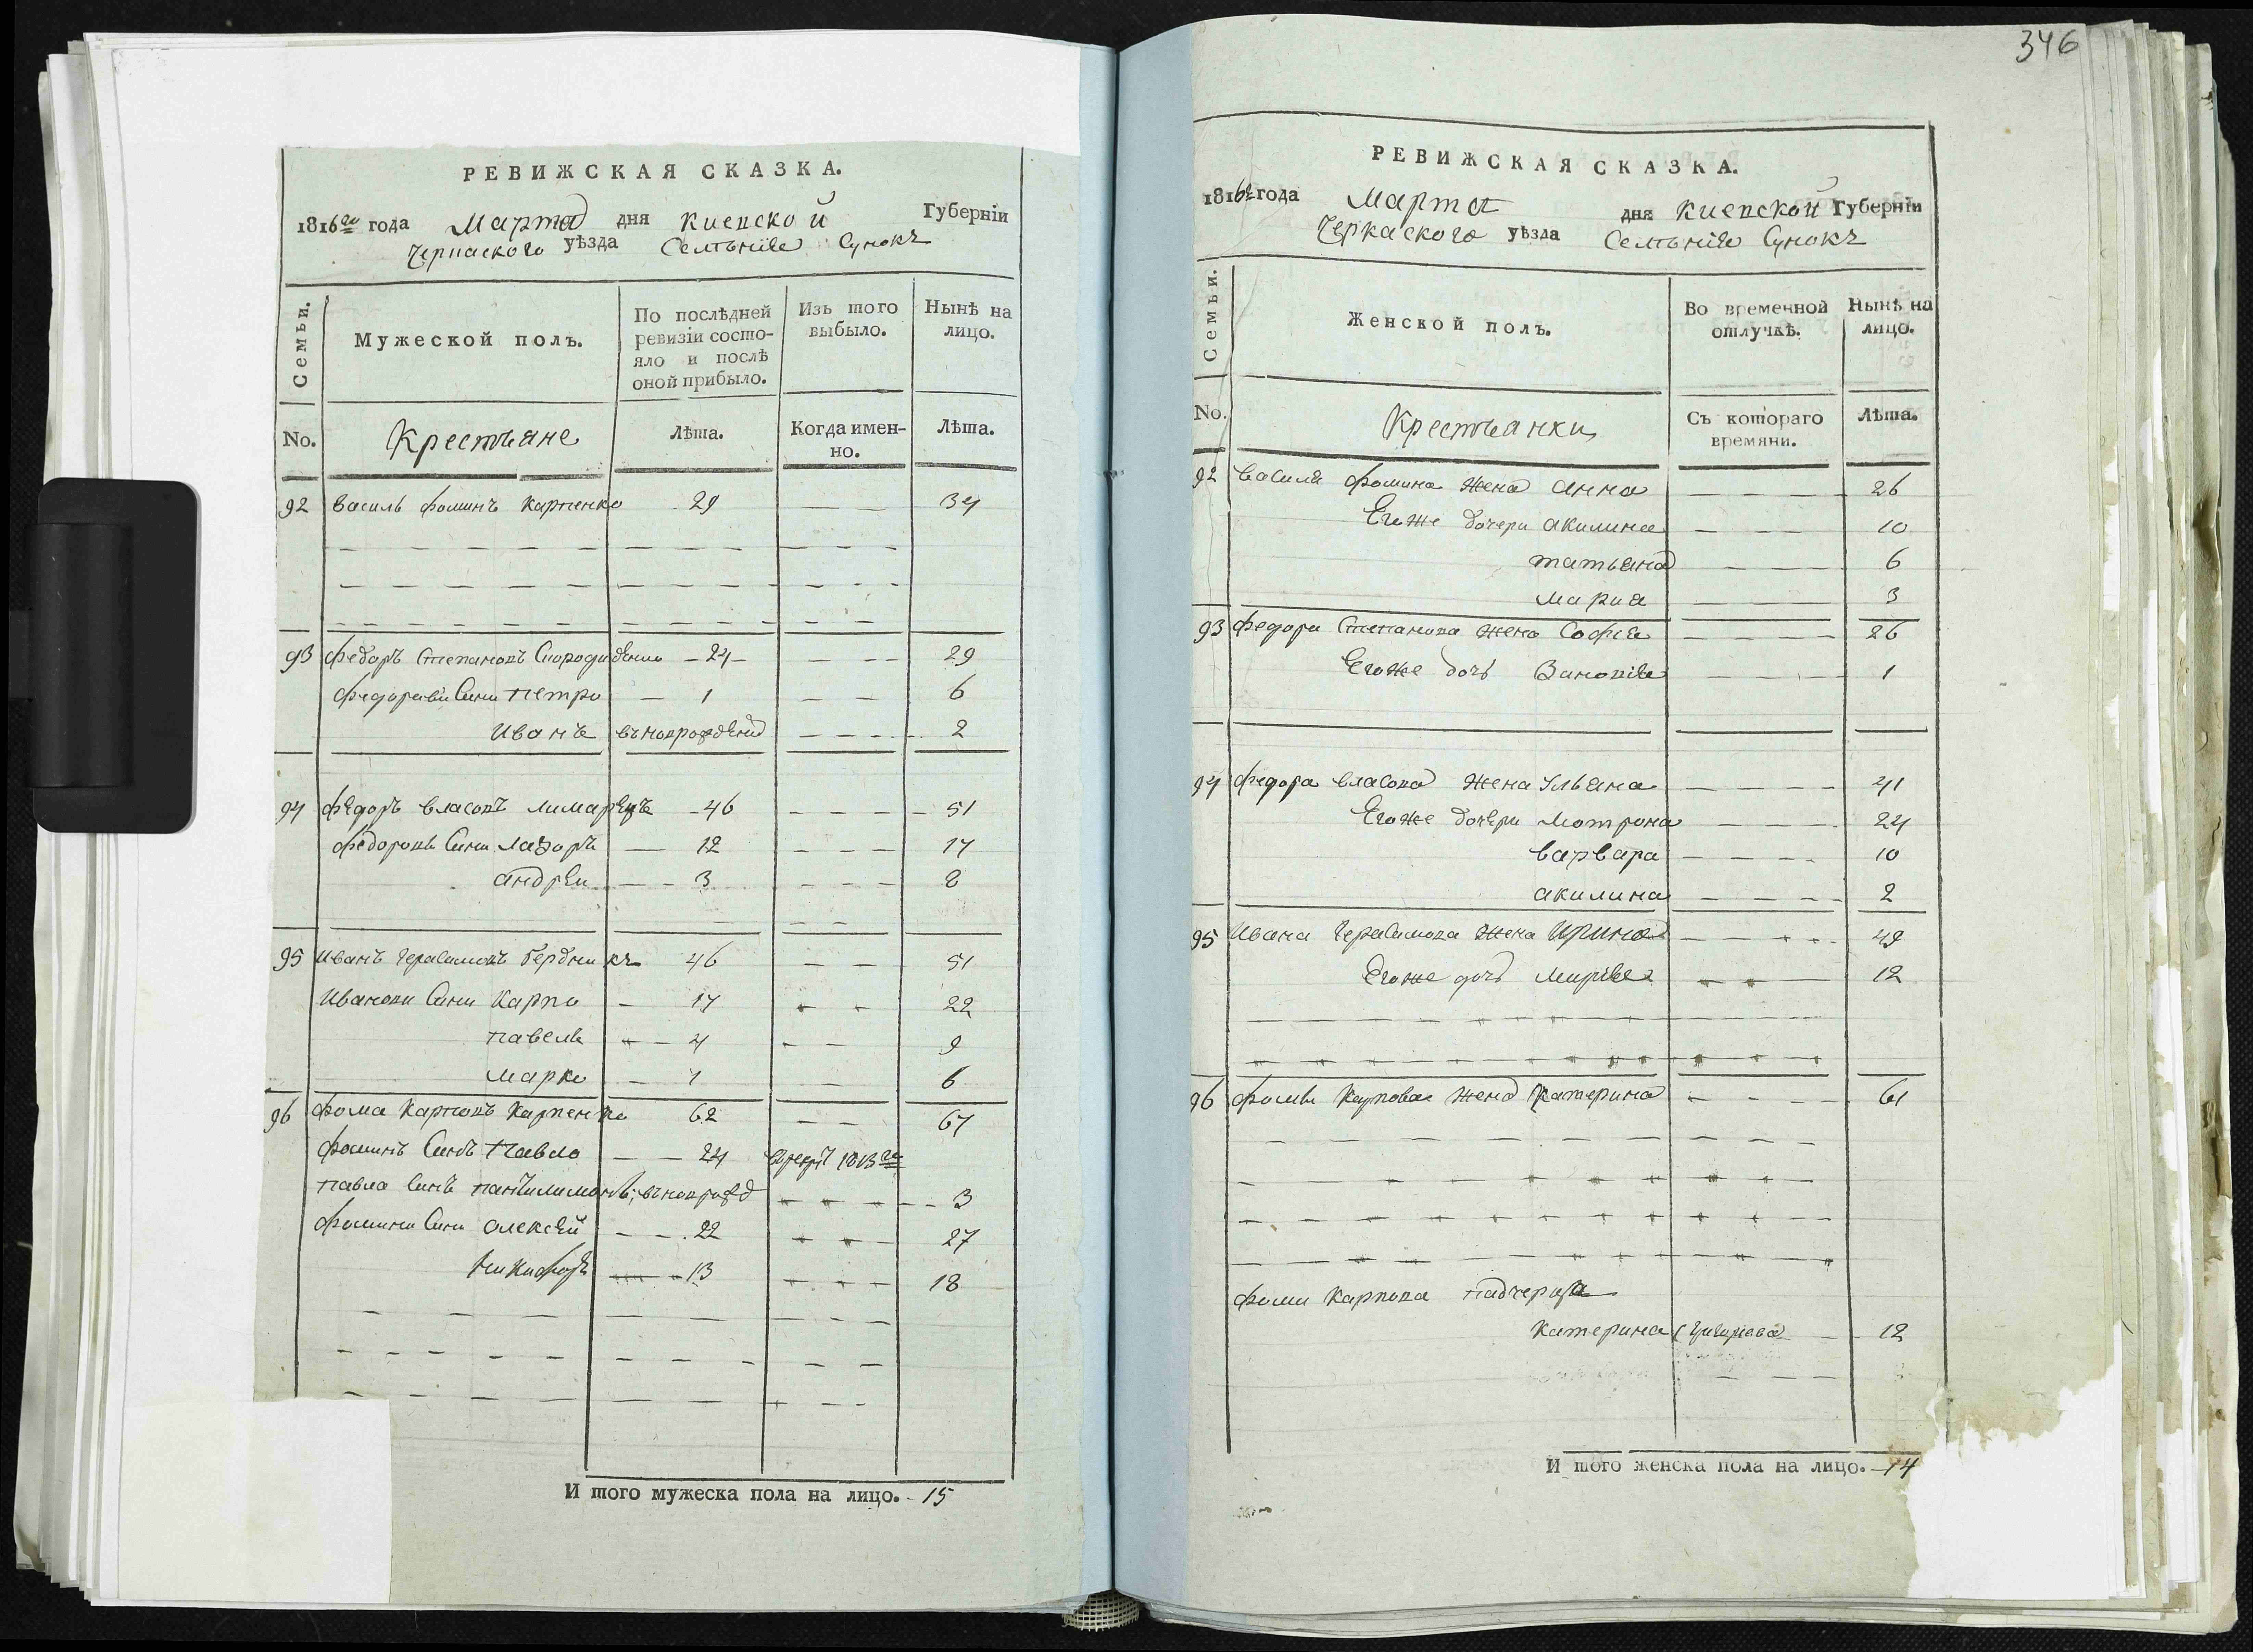 РЕВИЖСКАЯ СКАЗКА.
1816го года Марта дня Киевской Губерніи
Черкаского уѣзда Селѣнiе Сунокъ
Семьи.
Мужеской полъ.
По послѣдней ревизіи состояло и послѣ оной прибыло.
Изъ того выбыло.
Нынѣ на лицо.
No.
Крестьяне
Лѣта.
Когда именно.
Лѣта.
92 Василь Фоминъ Карпенко 29 — 34
93 Федоръ Степановъ — 24 — 29
Петро — 1 — 6
Иванъ 2
94 Федоръ Власовъ Лимарецъ — 46 — 51
Федоровы Сини Лазоръ — 12 — 17
Андрей — 3 — 8
95 Иванъ Герасимовъ Бердникъ 46 — 51
Ивановы Сини Карпо — 17 — 22
Павелъ — 4 — 9
Марко — 1 — 6
96 Фома Карповъ Карпенко 62 — 67
Фоминъ Синъ Павло — 24 1813го
Павла Синъ Пантилимонъ, въновърожд — 3
Фомини Сини Алексѣй — 22 — 27
Никифоръ — 13 — 18
И того мужеска пола на лицо. - 15
346
РЕВИЖСКАЯ СКАЗКА.
1816го года Марта дня Киевской Губерніи
Черкаского уѣзда Селѣнiе Сунокъ
Семьи.
Женской полъ.
Во временной отлучкѣ.
Нынѣ на лицо.
No.
Крестьянки
Съ котораго времяни.
Лѣта.
92 Василя Фомина жена Анна — 26
Егоже дочери Акилина — 10
Татьяна — 6
Мария — 3
93 Федора Степанова жена Софія — 26
Егоже дочь — 1
94 Федора Власова жена Ульяна — 41
Егоже дочери Мотрона — 24
Варвара — 10
Акилина — 2
95 Ивана Герасимова жена Ирина — 49
Егоже дочь — 12
96 Фомы Карпова жена Катерина — 61
Фоми Карпова падчерица
Катерина — 12
И того женска пола на лицо. - 14